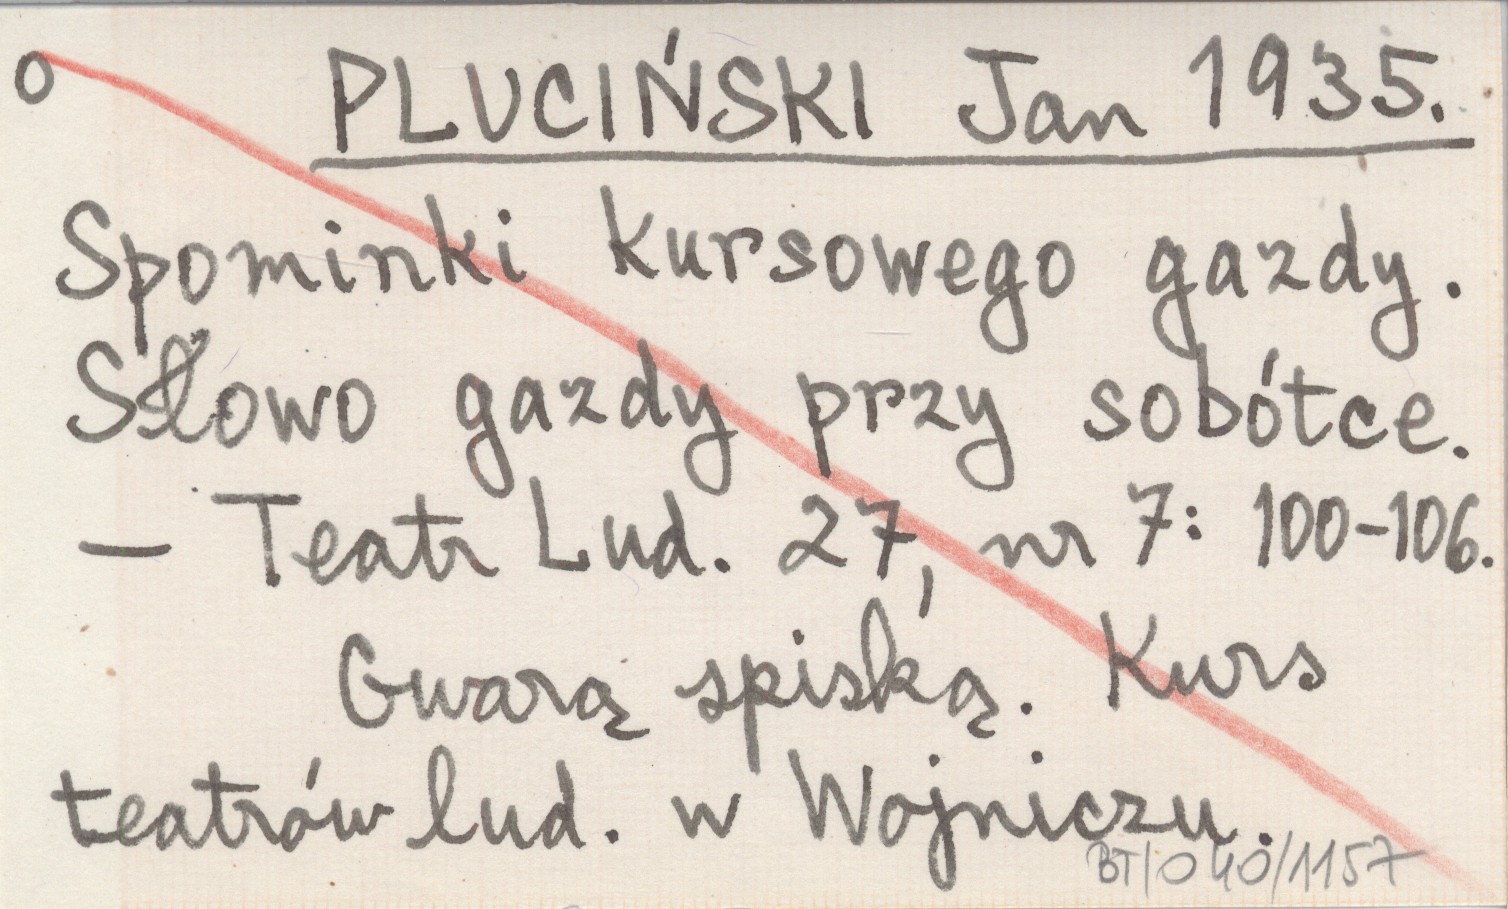 o PLUCIŃSKI Jan 1935.
Spominki kursowego gazdy.
Słowo gazdy przy sobótce.
— Teatr Lud. 27, nr 7: 100-106.
Gwarą spiską. Kurs
teatrów lud. w Wojniczu.
BT/040/1157